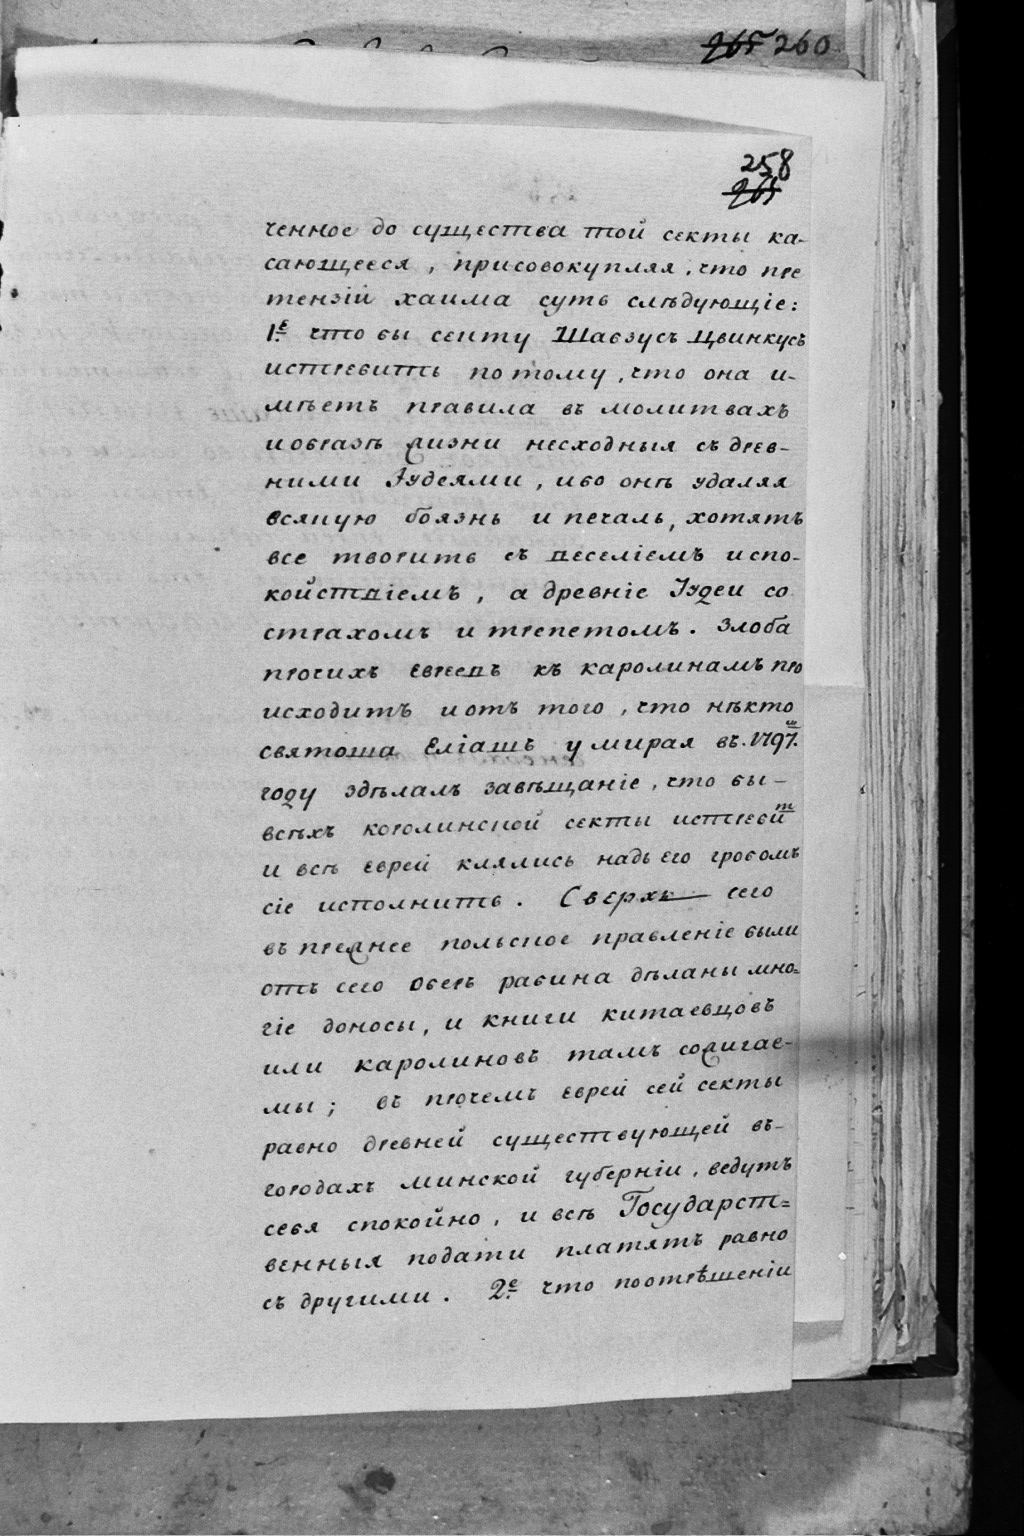 265 260
258
265
ченное до существа той секты ка-
сающееся, присовокупляя, что пре
тензіи хаима суть слѣдующіе:
1.е что бы секту Шавзусъ Цвинкусъ
истребить по тому, что она и-
мѣетъ правила въ молитвахъ
и образѣ жизни несходныя съ древ-
ними Іудеями, ибо онѣ удаляя
всякую боязнь и печаль, хотятъ
все творить съ веселіемъ и спо-
койствіемъ, а древніе Іудеи со
страхомъ и трепетомъ. Злоба
прочихъ евреевъ къ каролинамъ про
исходитъ и отъ того, что нѣкто
святоша Еліашъ умирая въ. 1797.м
году здѣлалъ завѣщаніе, что бы-
всѣхъ королинской секты истребит
и всѣ еврей клялись надъ его гробомъ
сіе исполнить. Сверхъ сего
въ прежнее польское правленіе были
отъ сего оберъ равина дѣланы мно-
гіе доносы, и книги китаевцовъ
или каролиновъ тамъ сожигае-
мы; въ прочемъ еврей сей секты
равно древней существующей въ-
городахъ минской губерніи, ведутъ
себя спокойно, и всѣ Государст-
венныя подати платятъ равно
съ другими. 2.е что поотрѣшеніи